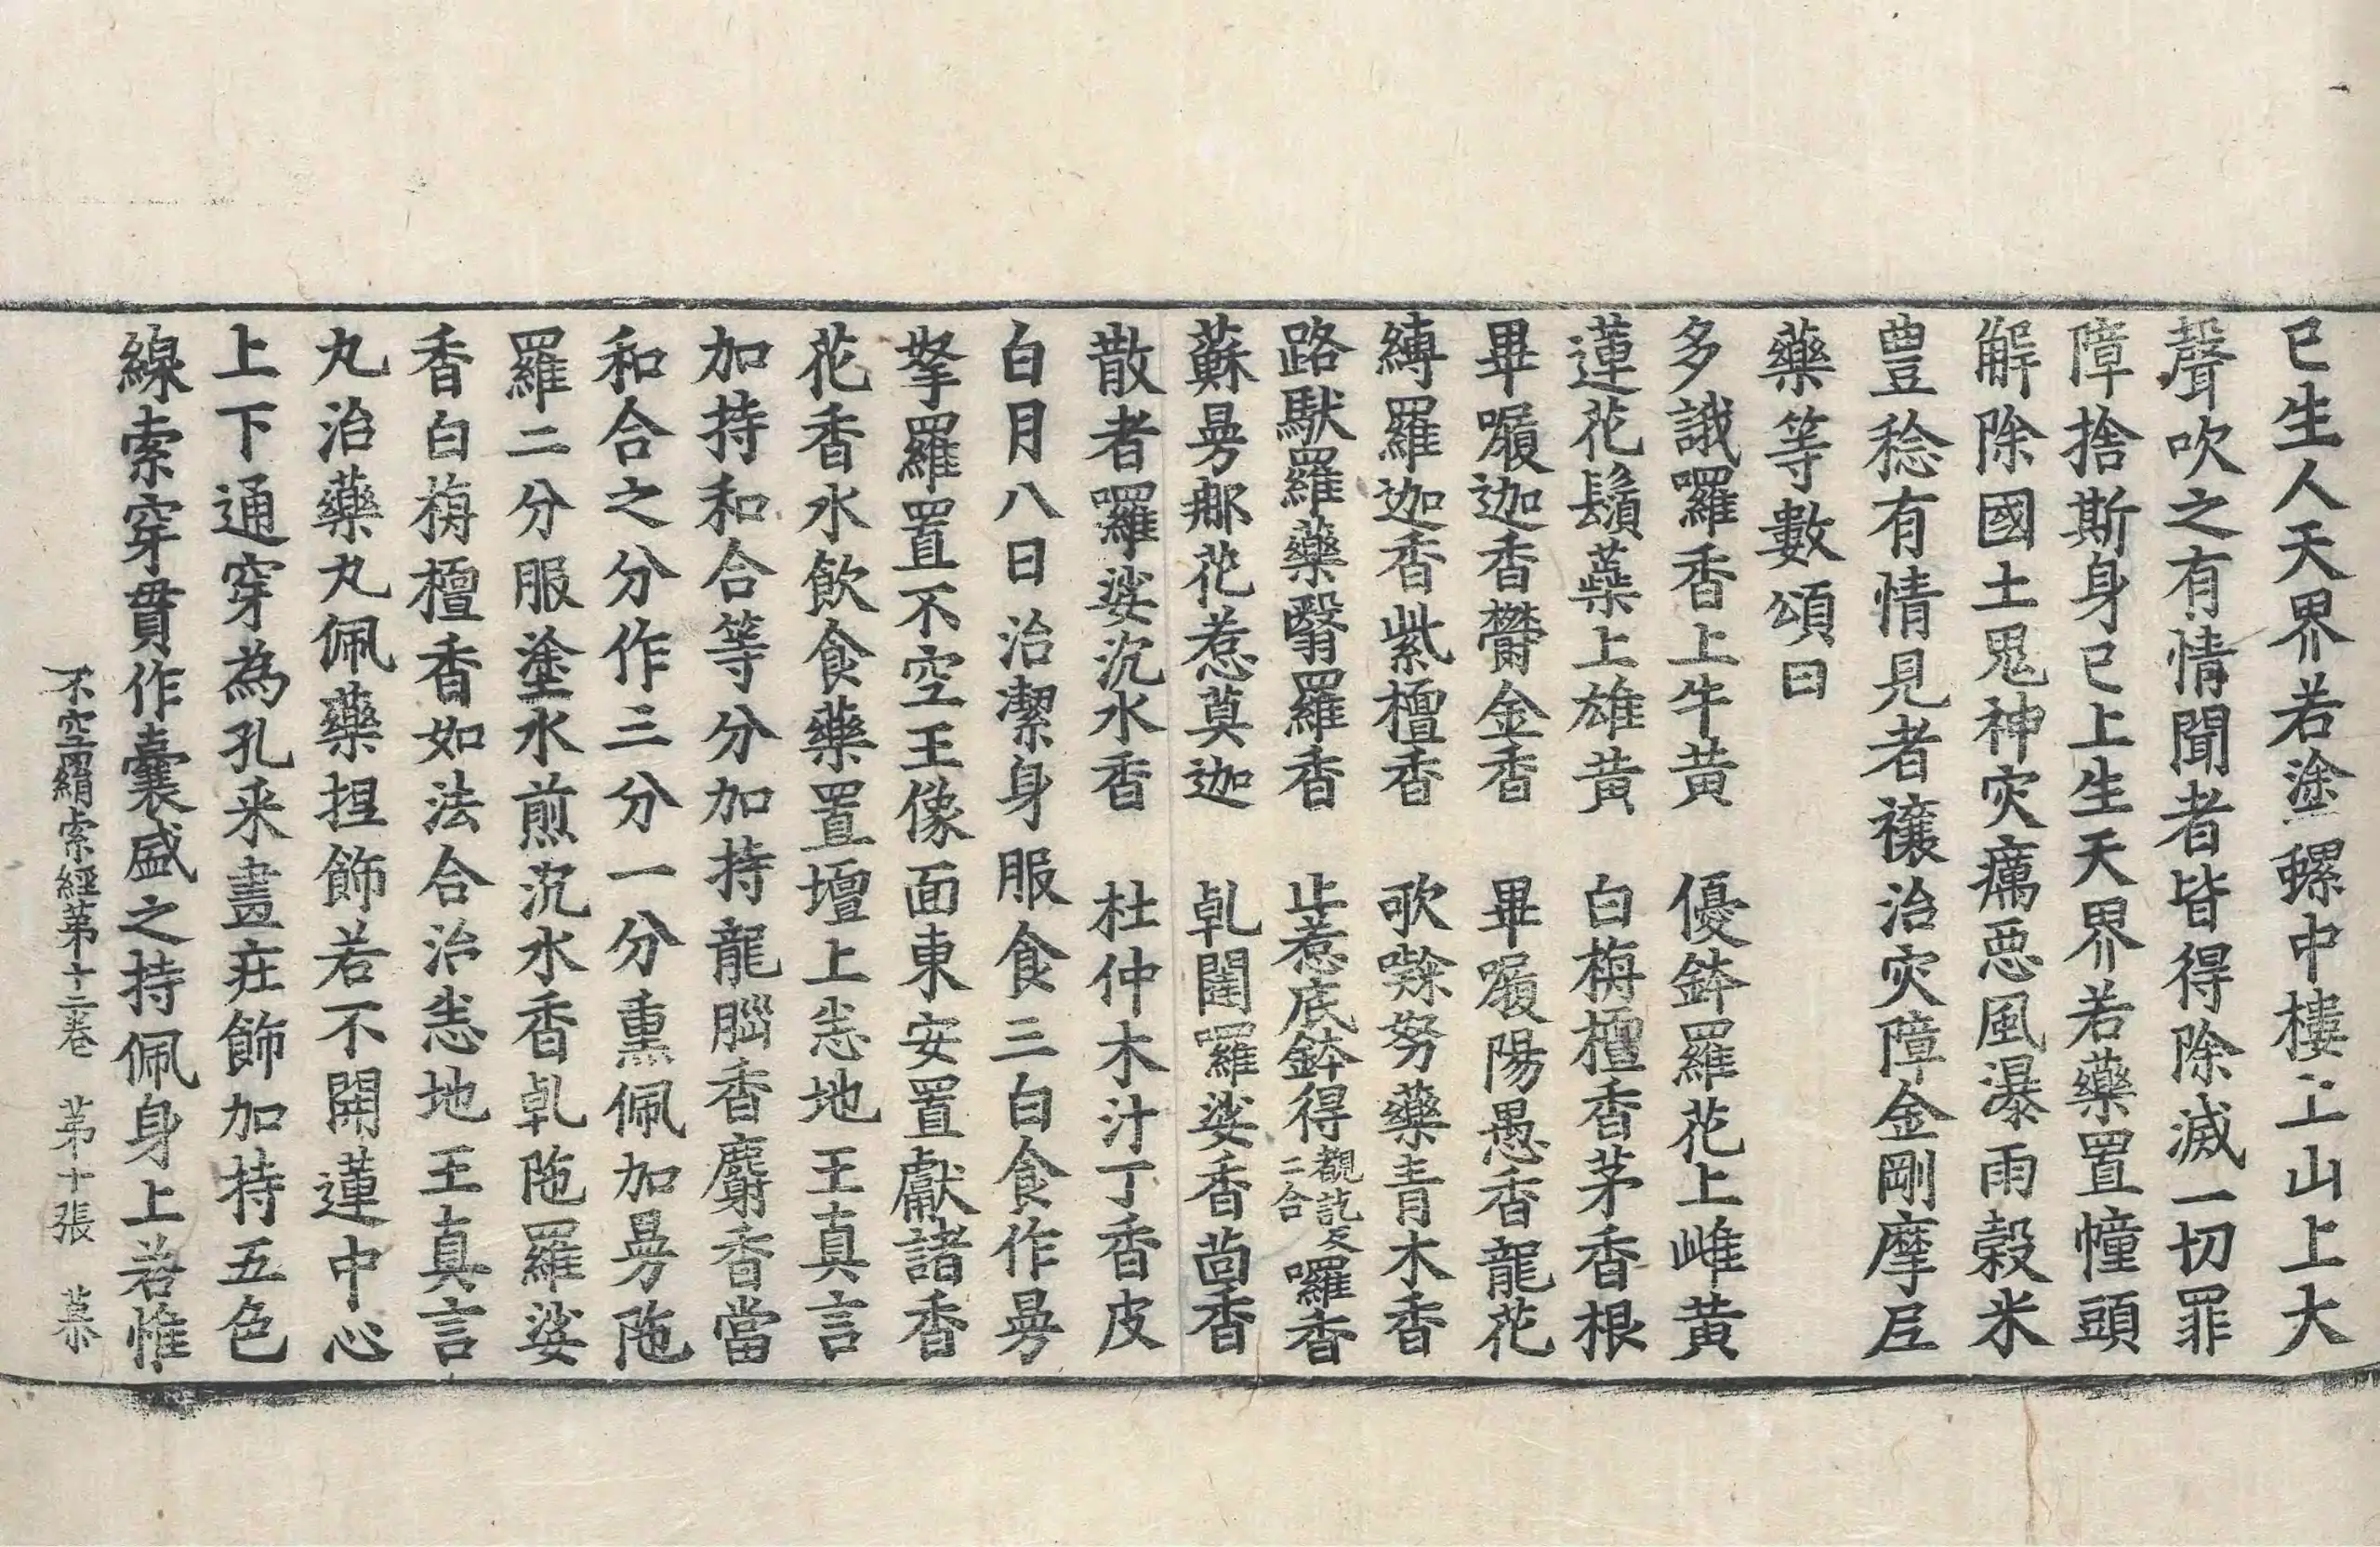 已生人天界若塗螺中樓上山上大
聲吹之有情聞者皆得除滅一切罪
障捨斯身已上生天界若藥置幢頭
解除國土鬼神灾癘惡風瀑雨穀米
豊稔有情見者禳治灾障金剛摩尼
藥等數頌曰
多誐囉香上牛黃　優鉢羅花上雌黃
蓮花鬚蘂上雄黃　白栴檀香茅香根
畢㗚迦香欝金香　畢㗚陽愚香龍花
縛羅迦香紫檀香　歌㗚努藥青木香
路馱羅藥翳羅香　止惹底鉢得觀訖反二合囉香
蘇曼那花惹莫迦　乹闥羅娑香茴香
散者囉娑沉水香　杜仲木汁丁香皮
白月八日治潔身服食三白食作曼
拏羅置不空王像面東安置獻諸香
花香水飲食藥置壇上悉地王真言
加持和合等分加持龍腦香麝香當
和合之分作三分一分熏佩加曼陁
羅二分服塗水煎沉水香乹陁羅娑
香白栴檀香如法合治悉地王真言
丸治藥丸佩藥捏飾若不開蓮中心
上下通穿為孔釆畫莊飾加持五色
線索穿貫作囊盛之持佩身上若惟
不空羂索經第十二卷　第十張　慕